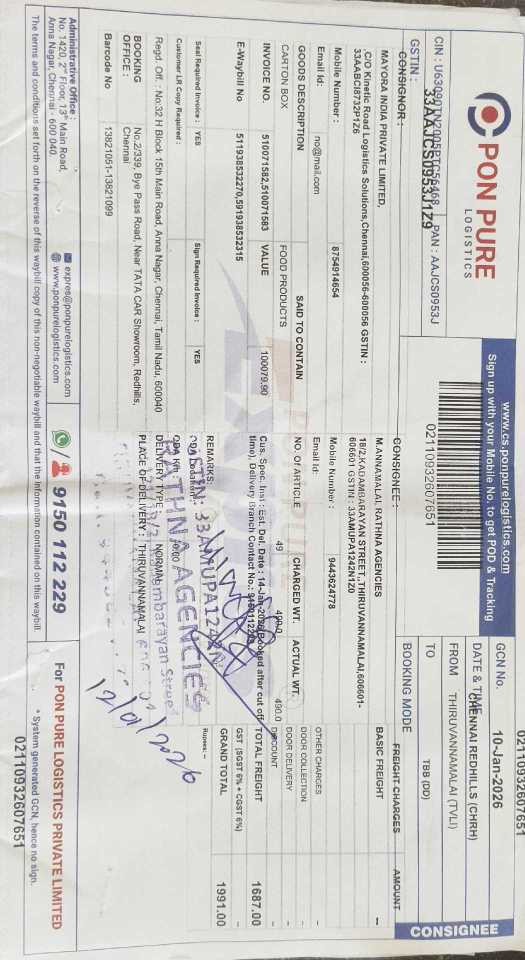 PON PURE
LOGISTICS
www.cs.ponpurelogistics.com
Sign up with your Mobile No. to get POD & Tracking
02110932607651
CIN : U63090TN2005PTC56468 PAN : AAJCS0953J
GSTIN : 33AAJCS0953J1Z9
02110932607651
GCN No.
DATE & TIME 10-Jan-2026
FROM CHENNAI REDHILLS (CHRH)
TO THIRUVANNAMALAI (TVLI)
BOOKING MODE TBB (DD)
CONSIGNEE
CONSIGNOR:
MAYORA INDIA PRIVATE LIMITED,
,C/O Kinetic Road Logistics Solutions,Chennai,600056-600056 GSTIN :
33AABCI8732P1Z6
Mobile Number : 8754914654
Email Id: no@mail.com
CONSIGNEE :
M.ANNAMALAI RATHNA AGENCIES
18/2,KADAMBARAYAN STREET,,THIRUVANNAMALAI,606601-
606601 GSTIN : 33AMUPA1242N1Z0
Mobile Number : 9443624778
Email Id:
FREIGHT CHARGES AMOUNT
BASIC FREIGHT --
OTHER CHARGES
DOOR COLLECTION
DOOR DELIVERY
DISCOUNT
TOTAL FREIGHT 1687.00
GST (SGST 6% + CGST 6%)
GRAND TOTAL 1991.00
Rupees: --
GOODS DESCRIPTION SAID TO CONTAIN NO. OF ARTICLE CHARGED WT. ACTUAL WT.
CARTON BOX FOOD PRODUCTS 49 490.0 490.0
INVOICE NO. 510071582,510071583 VALUE 100079.90
E-Waybill No 511938532270,591938532315
Cus. Spec. Inst : Est. Del. Date : 14-Jan-2026(Booked after cut off
time). Delivery Branch Contact No.:
Seal Required Invoice : YES Sign Required Invoice : YES
Customer LR Copy Required :
REMARKS:
DELIVERY TYPE : NORMAL
PLACE OF DELIVERY : THIRUVANNAMALAI
GSTIN: 33AMUPA1242N
RATHNA AGENCIES
12/01/2026
Regd. Off. : No:32 H Block 15th Main Road, Anna Nagar, Chennai, Tamil Nadu, 600040
BOOKING OFFICE : No.2/339, Bye Pass Road, Near TATA CAR Showroom, Redhills, Chennai
Barcode No 13821051-13821099
Administrative Office :
No. 1420, 2nd Floor, 13th Main Road,
Anna Nagar, Chennai - 600 040.
expres@ponpurelogistics.com
www.ponpurelogistics.com
9150 112 229
For PON PURE LOGISTICS PRIVATE LIMITED
* System generated GCN, hence no sign.
The terms and conditions set forth on the reverse of this waybill copy of this non-negotiable waybill and that the information contained on this waybill.
02110932607651